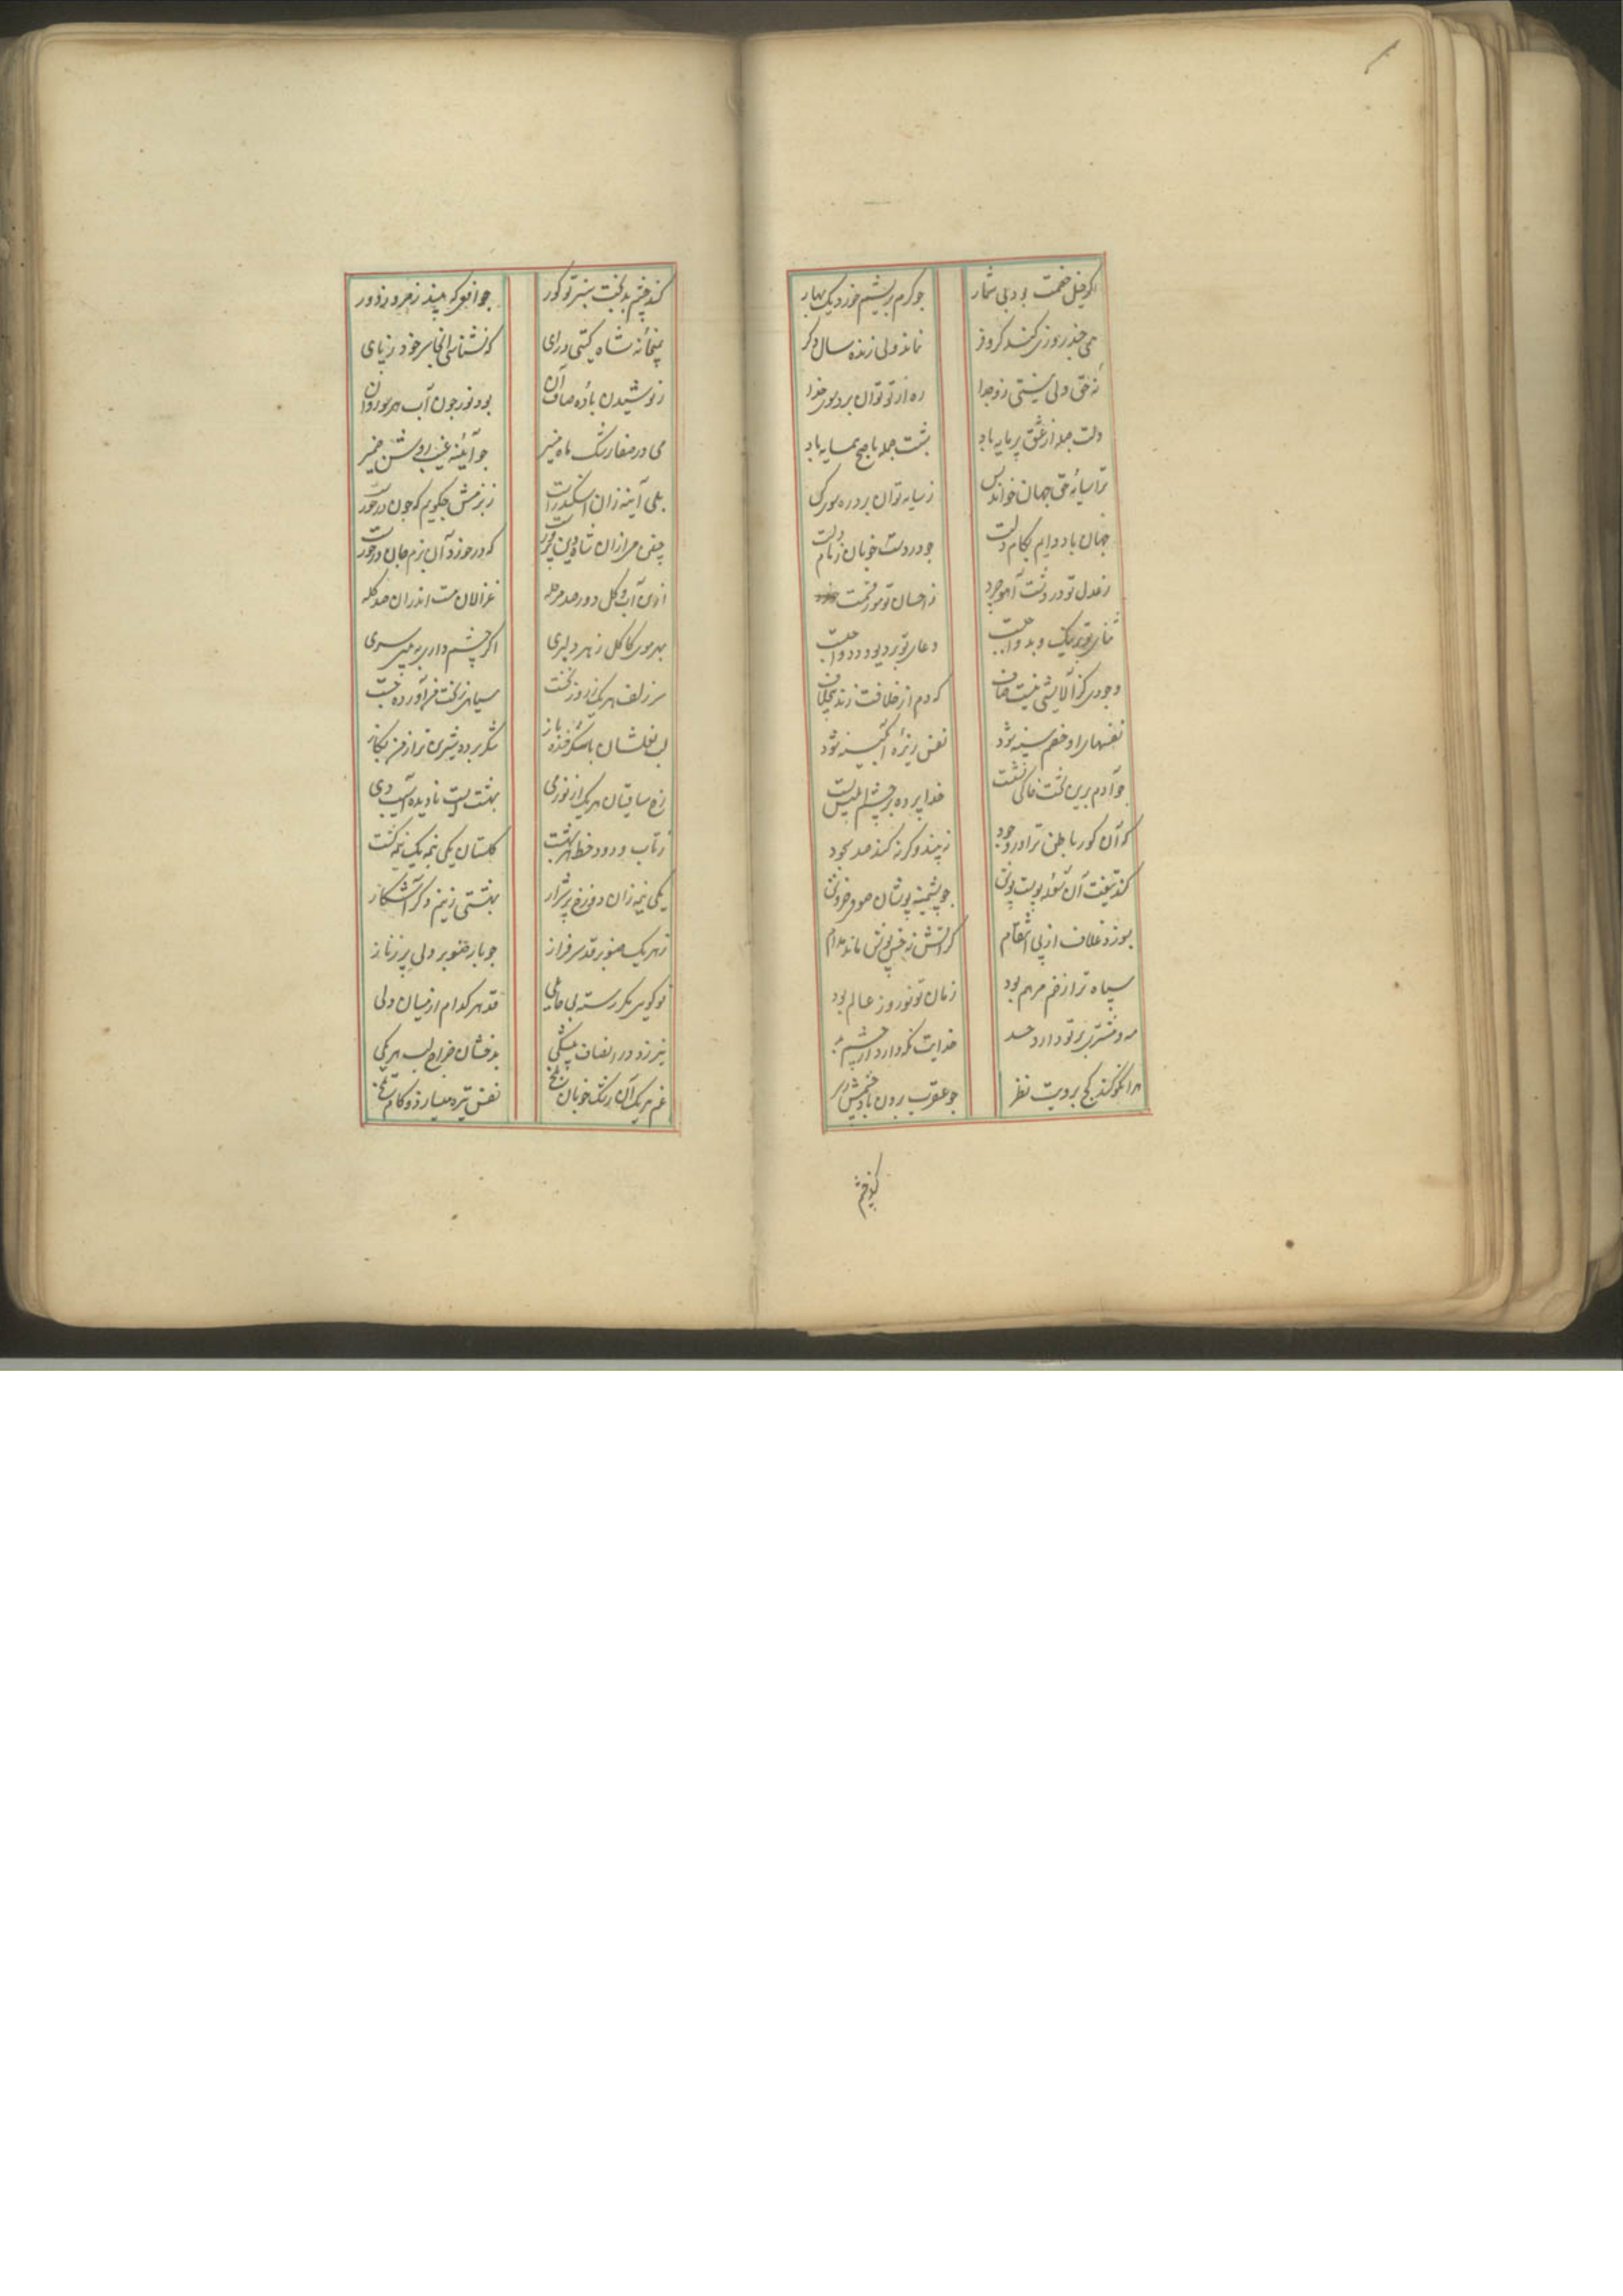 اگر خیل خصمت بود بی شمار
چو کرم بریشم خورد یک بهار
همی چند روزی کند کر و فر
نماند ولی زنده سال دگر
نه حق ولی نیستی زو جدا
ره از تو توان برد سوی خدا
دلت جمله از عشق پر مایه باد
شبت جمله با صبح همسایه باد
ترا سایه حق جهان خواند پس
ز سایه توان برد ره سوی کس
جهان باد دایم بکام دلت
چو در دست خوبان زمام دلت
ز عدل تو در دشت آهو چرد
ز احسان تو مور نعمت خورد
ثنای تو بر نیک و بد واجبست
دعای تو بر دیو و دد واجبست
وجودی کز آلایشی نیست صاف
که دم از خلافت زند بی خلاف
نفسهای او خصم سینه شود
نفس ریزه آبگینه شود
چو آدم برین تخت خاکی نشست
خدا پرده بر چشم ابلیس بست
که آن کور باطن ترا در وجود
نه بیند وگرنه کند صد سجود
کند تیغت آن شعله پوست پوش
چو پشمینه پوشان صوفی خروش
بسوزد غلاف از پی انتقام
که آتش نه خس پوش ماند مدام
سپاه ترا زخم مرهم بود
زمان تو نوروز عالم بود
مه و مشتری بر تو دارد حسد
خدایت نگه دارد از چشم بد
هر آنکو کند کج برویت نظر
چو عقرب برون باد چشمش ز سر
کند چشم
کند چشم بدبخت بختر تو کور
چو افعی که بیند زمرد ز دور
بمیخانه شاه گیتی درای
که نشناسی آنجا سر خود ز پای
ز نوشیدن باده صاف آن
بود نور چون آب هر سو روان
می در صفا رشک ماه منیر
چو آئینه غیب روشن ضمیر
بلی آینه زان اسکندرست
ز بزمش چگویم که چون درخورست
که در خورد آن بزم جان درخورست
ازین آب و گل دور صد مرحله
غزالان مست اندران صد گله
بهر موی کاکل ز هر دلبری
اگر چشم داری ببین سری
سر زلف هر یک ز روز نخست
سیاهی ز بخت من آورده است
لب لعلشان با شکر خنده باز
شکر برده شیرین تر از من بکار
رخ ساقیان هر یک از نور می
بهشت است نادیده آسیب دی
ز تاب و دود خط بهشت
گلستان یکی نیمه یک نیمه کشت
یکی نیمه زان دوزخ پر شرار
بهشتی ز نیم دگر آشکار
ز هر یک صنوبر قد سرفراز
چو بار صنوبر دلی پر ز ناز
تو گویی مگر رسته بی حاصلی
قد هر کدام از میان دلی
نیرزد در انصاف بیشکی
بدخشان خراج لب هر یکی
غم هر یک آن رشک خوبان بلخ